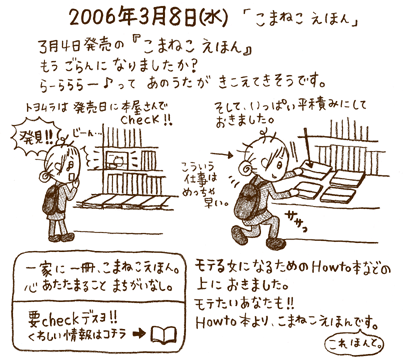 2006年3月8日(水) 「こまねこ えほん」
3月4日発売の『こまねこ えほん』
もう ごらんに なりましたか?
らーららら ー♪って あのうたが きこえてきそうです。
トヨムラは 発売日に本屋さんで
check!!
発見!!
じーん…
そして、いっぱい平積みにして
おきました。
こういう
仕事は
めっちゃ
早い。
ササッ
一家に一冊、こまねこえほん。
心あたたまること まちがいなし。
要checkデスヨ!!
くわしい情報はコチラ
モテる女になるためのHowto本などの
上に おきました。
モテたいあなたも!!
Howto本より、こまねこえほんです。
これ、ほんと。